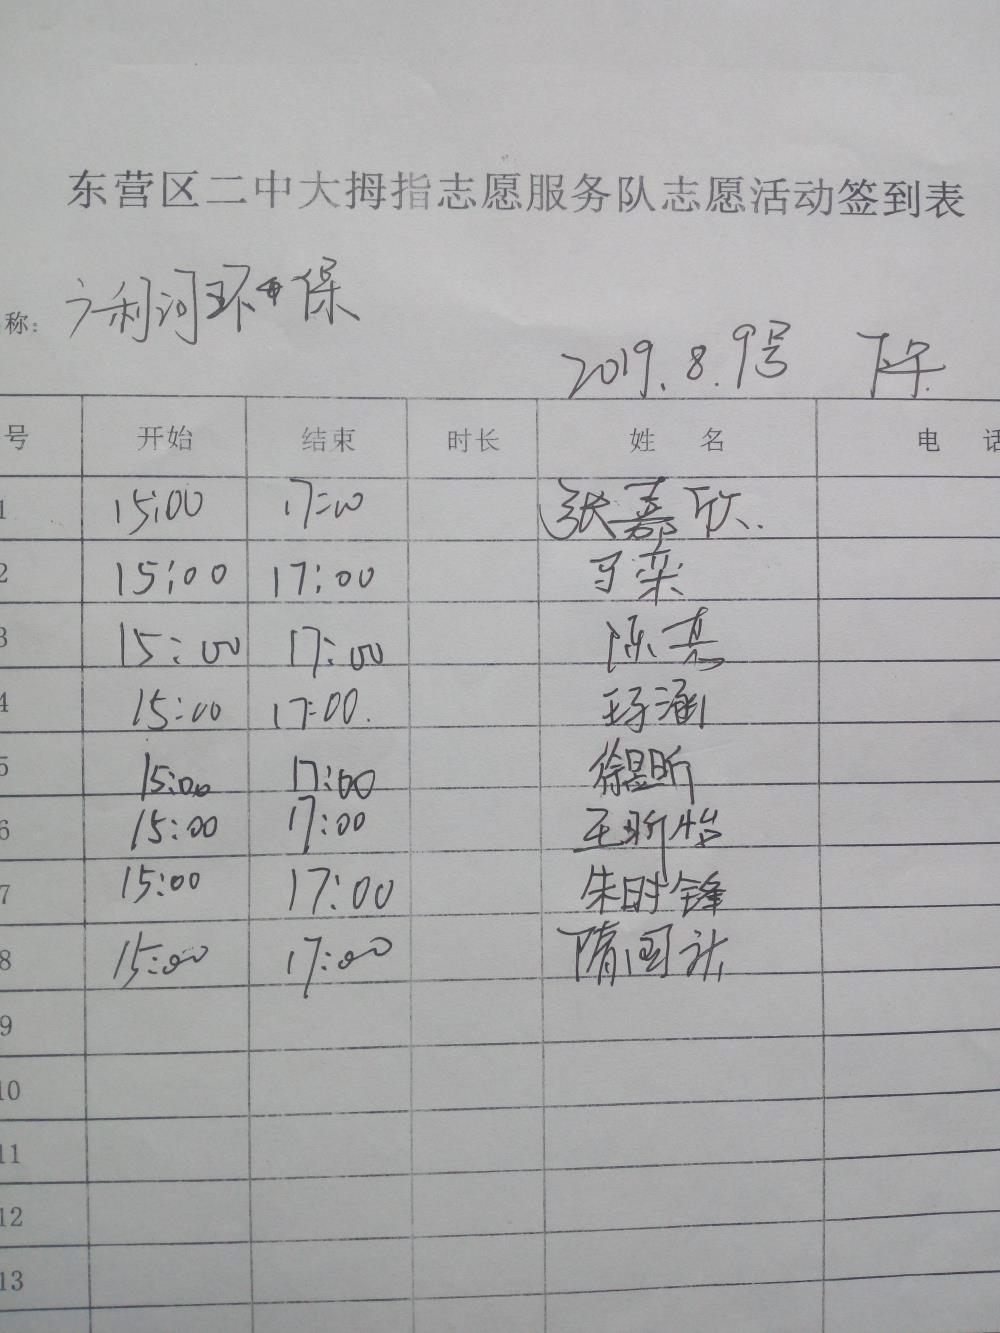 东营区二中大拇指志愿服务队志愿活动签到表
称: 广利河环保
2019.8.9号 下午
号 开始 结束 时长 姓 名 电 话
1 15:00 17:00 张嘉欣
2 15:00 17:00 马栾
3 15:00 17:00 陈
4 15:00 17:00 涵
5 15:00 17:00 徐昱昕
6 15:00 17:00 王昕怡
7 15:00 17:00 朱时锋
8 15:00 17:00 隋国
9
10
11
12
13